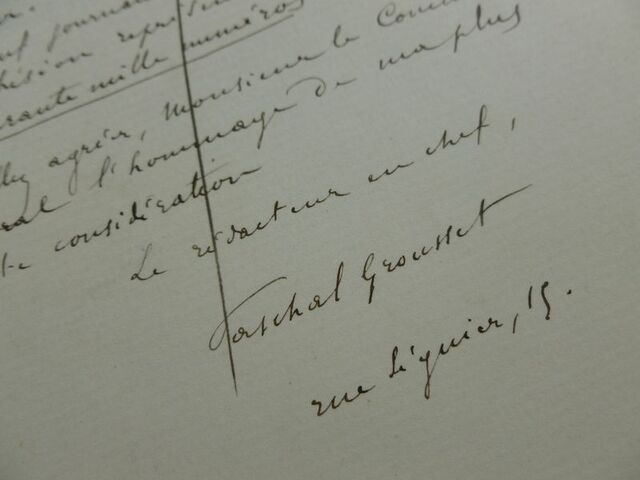 journau
représen
rante mille numéros
agréer, Monsieur le Com
l'hommage de ma plus
considération
Le rédacteur en chef,
Paschal Grousset
rue Séguier, 15.